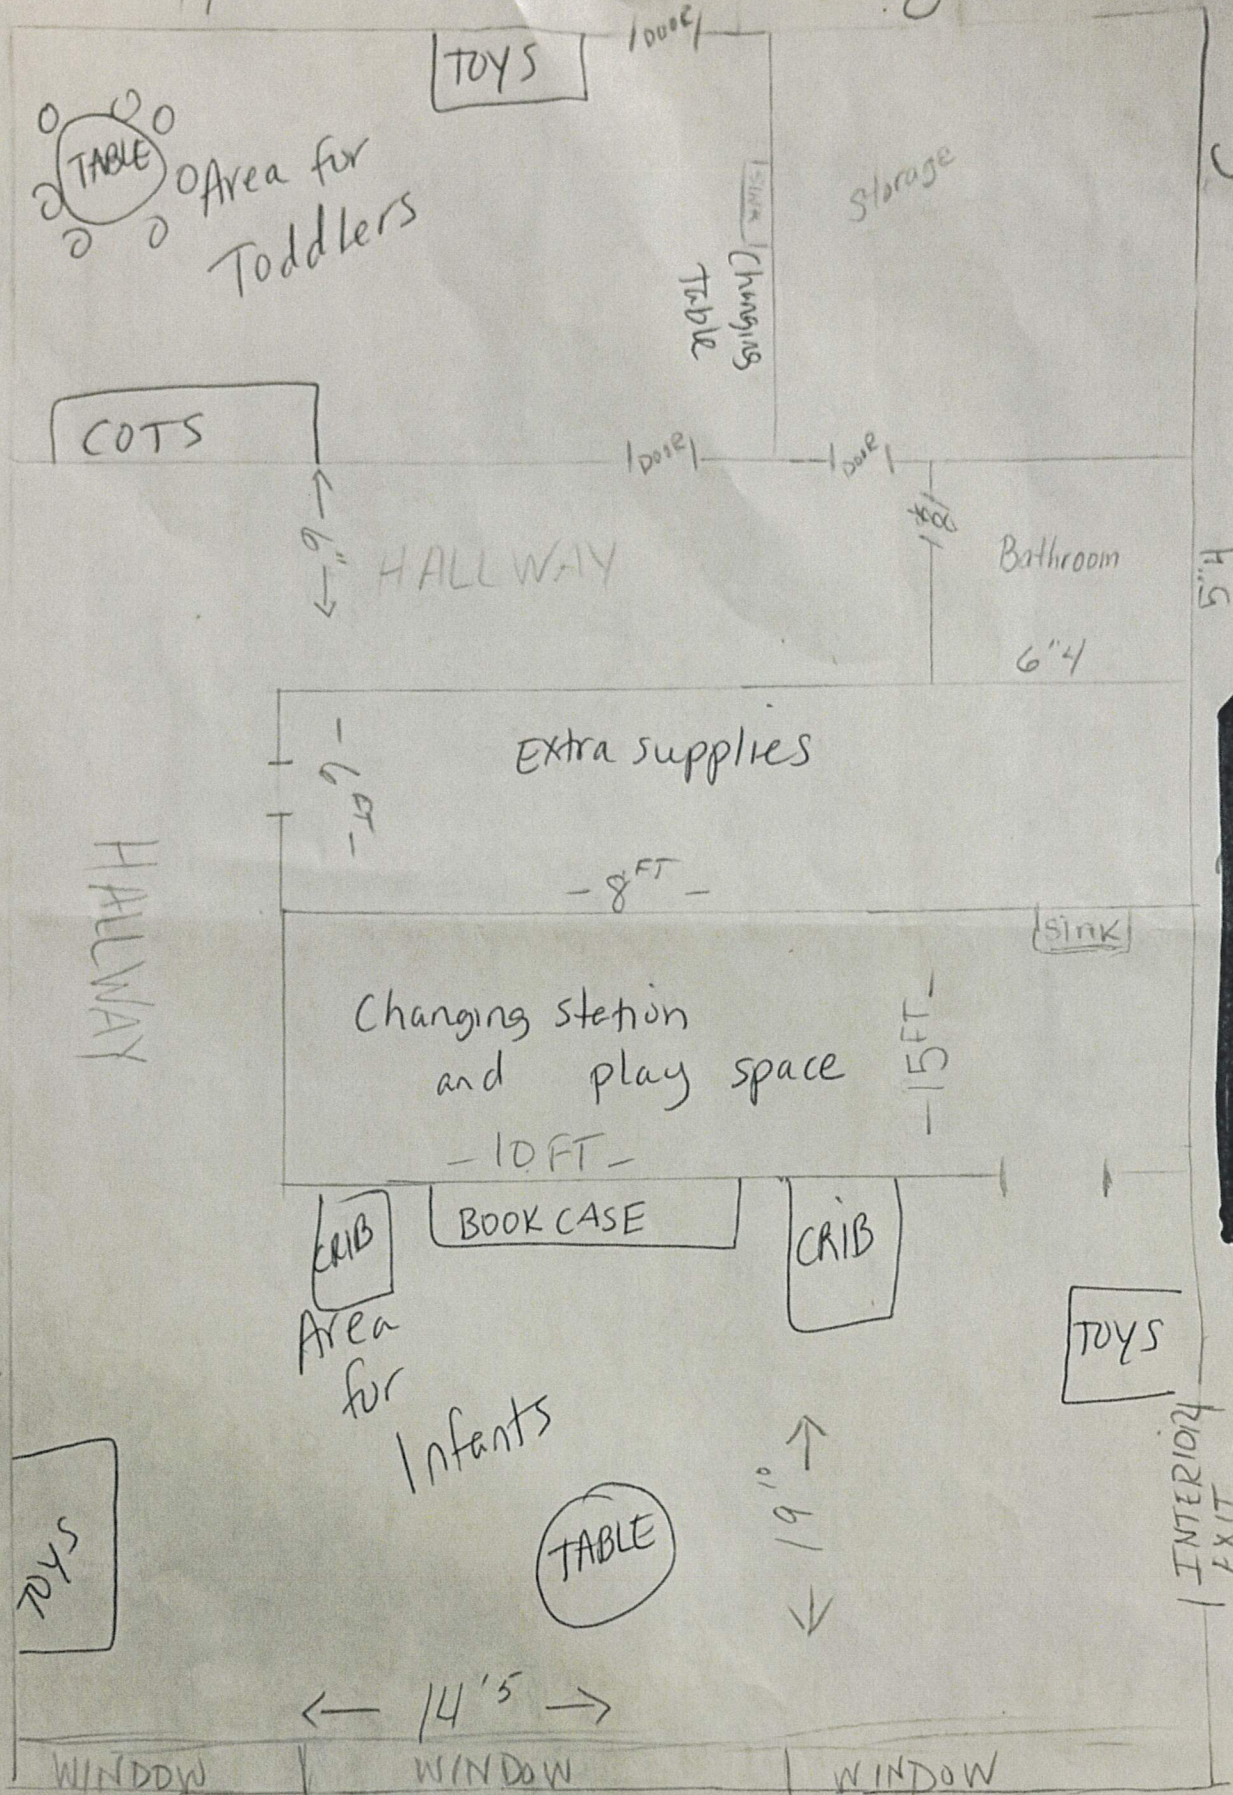 DOOR
TOYS
TABLE
Area for
Toddlers
SINK
Changing
Table
Storage
COTS
DOOR
DOOR
6"
HALLWAY
Bathroom
5"4
6"4
Extra supplies
6 FT
8 FT
HALLWAY
sink
Changing station
and play space
15 FT
10 FT
CRIB
BOOK CASE
CRIB
TOYS
Area
for
Infants
INTERIOR
EXIT
TOYS
TABLE
19"
14'5
WINDOW
WINDOW
WINDOW